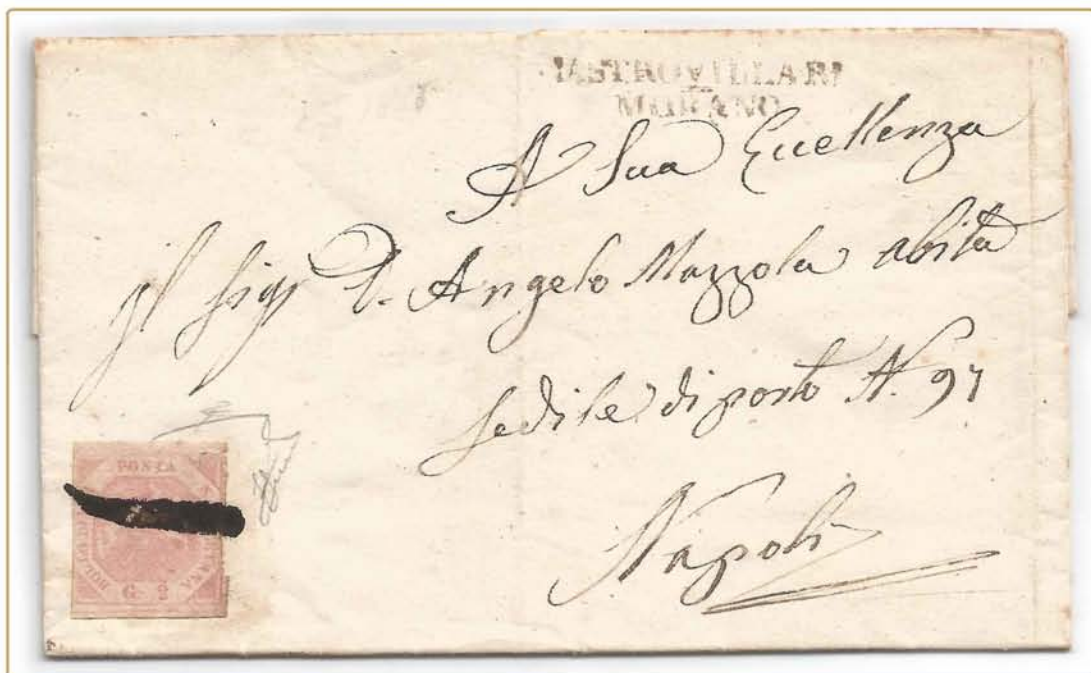 CASTROVILLARI
MORANO
A Sua Eccellenza
Il Sigr D. Angelo Mazzola abita
Sedile di porto N. 97
Napoli
POSTA
G. 2